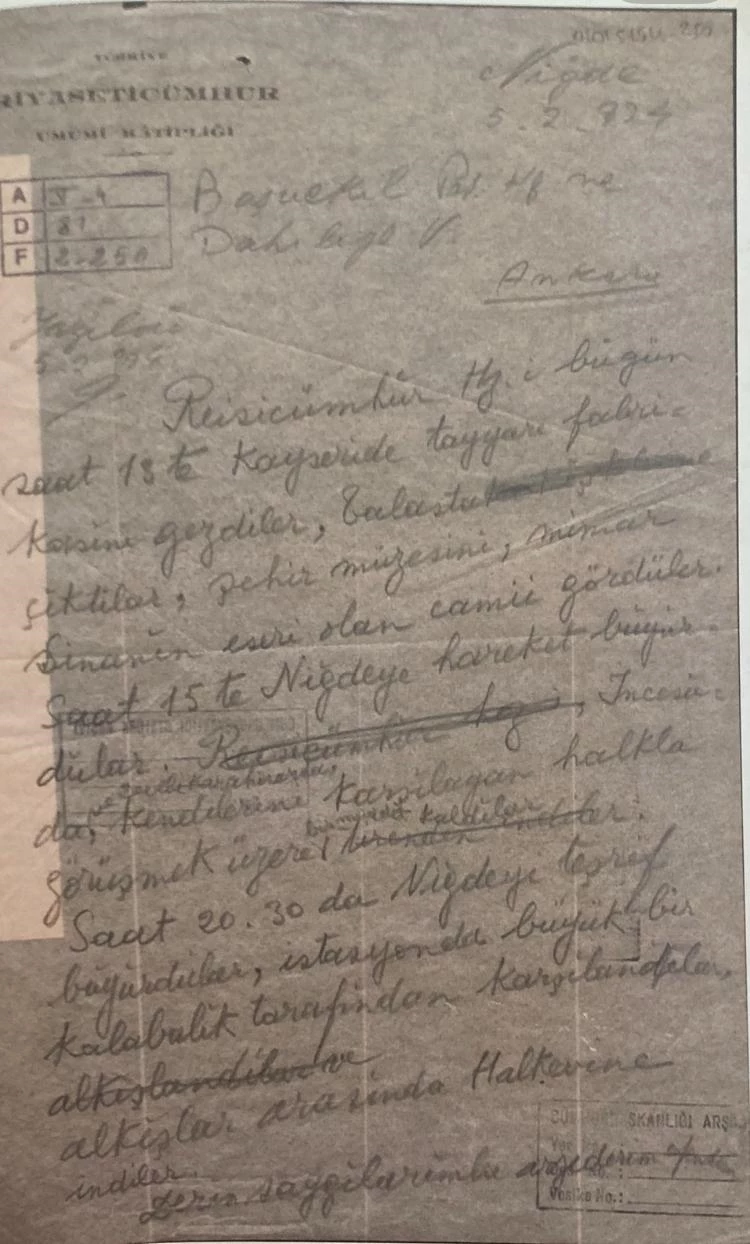 01015154-250
TÜRKİYE
RİYASETİCÜMHUR
UMUMİ KÂTİPLİĞİ
Niğde
5.2.934
A V-4
D 81
F 2-250
Başvekil Paş. Hz. ne
Dahiliye V.
Ankara
Yazıldı
5.2.934
Reisicümhür Hz.i bugün
saat 13 te Kayseride tayyare fabri-
kasını gezdiler, Talasta
çıktılar, şehir müzesini, mimar
Sinanın eseri olan camii gördüler.
Saat 15 te Niğdeye hareket buyur-
dular. Reisicümhür Incesu-
da, kendilerini karşılayan halkla
ve
görüşmek üzere bir müddet kaldılar.
trenden indiler
Saat 20.30 da Niğdeyi teşrif
buyurdular, istasyonda büyük bir
kalabalık tarafından karşılandılar,
alkışlandılar ve
alkışlar arasında Halkevine
indiler.
Derin saygılarımla arzederim
SKANLIĞI ARŞ
Vesika No.: